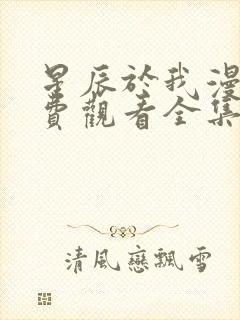 星辰於我漫
費觀看全集
清風戀飄雪